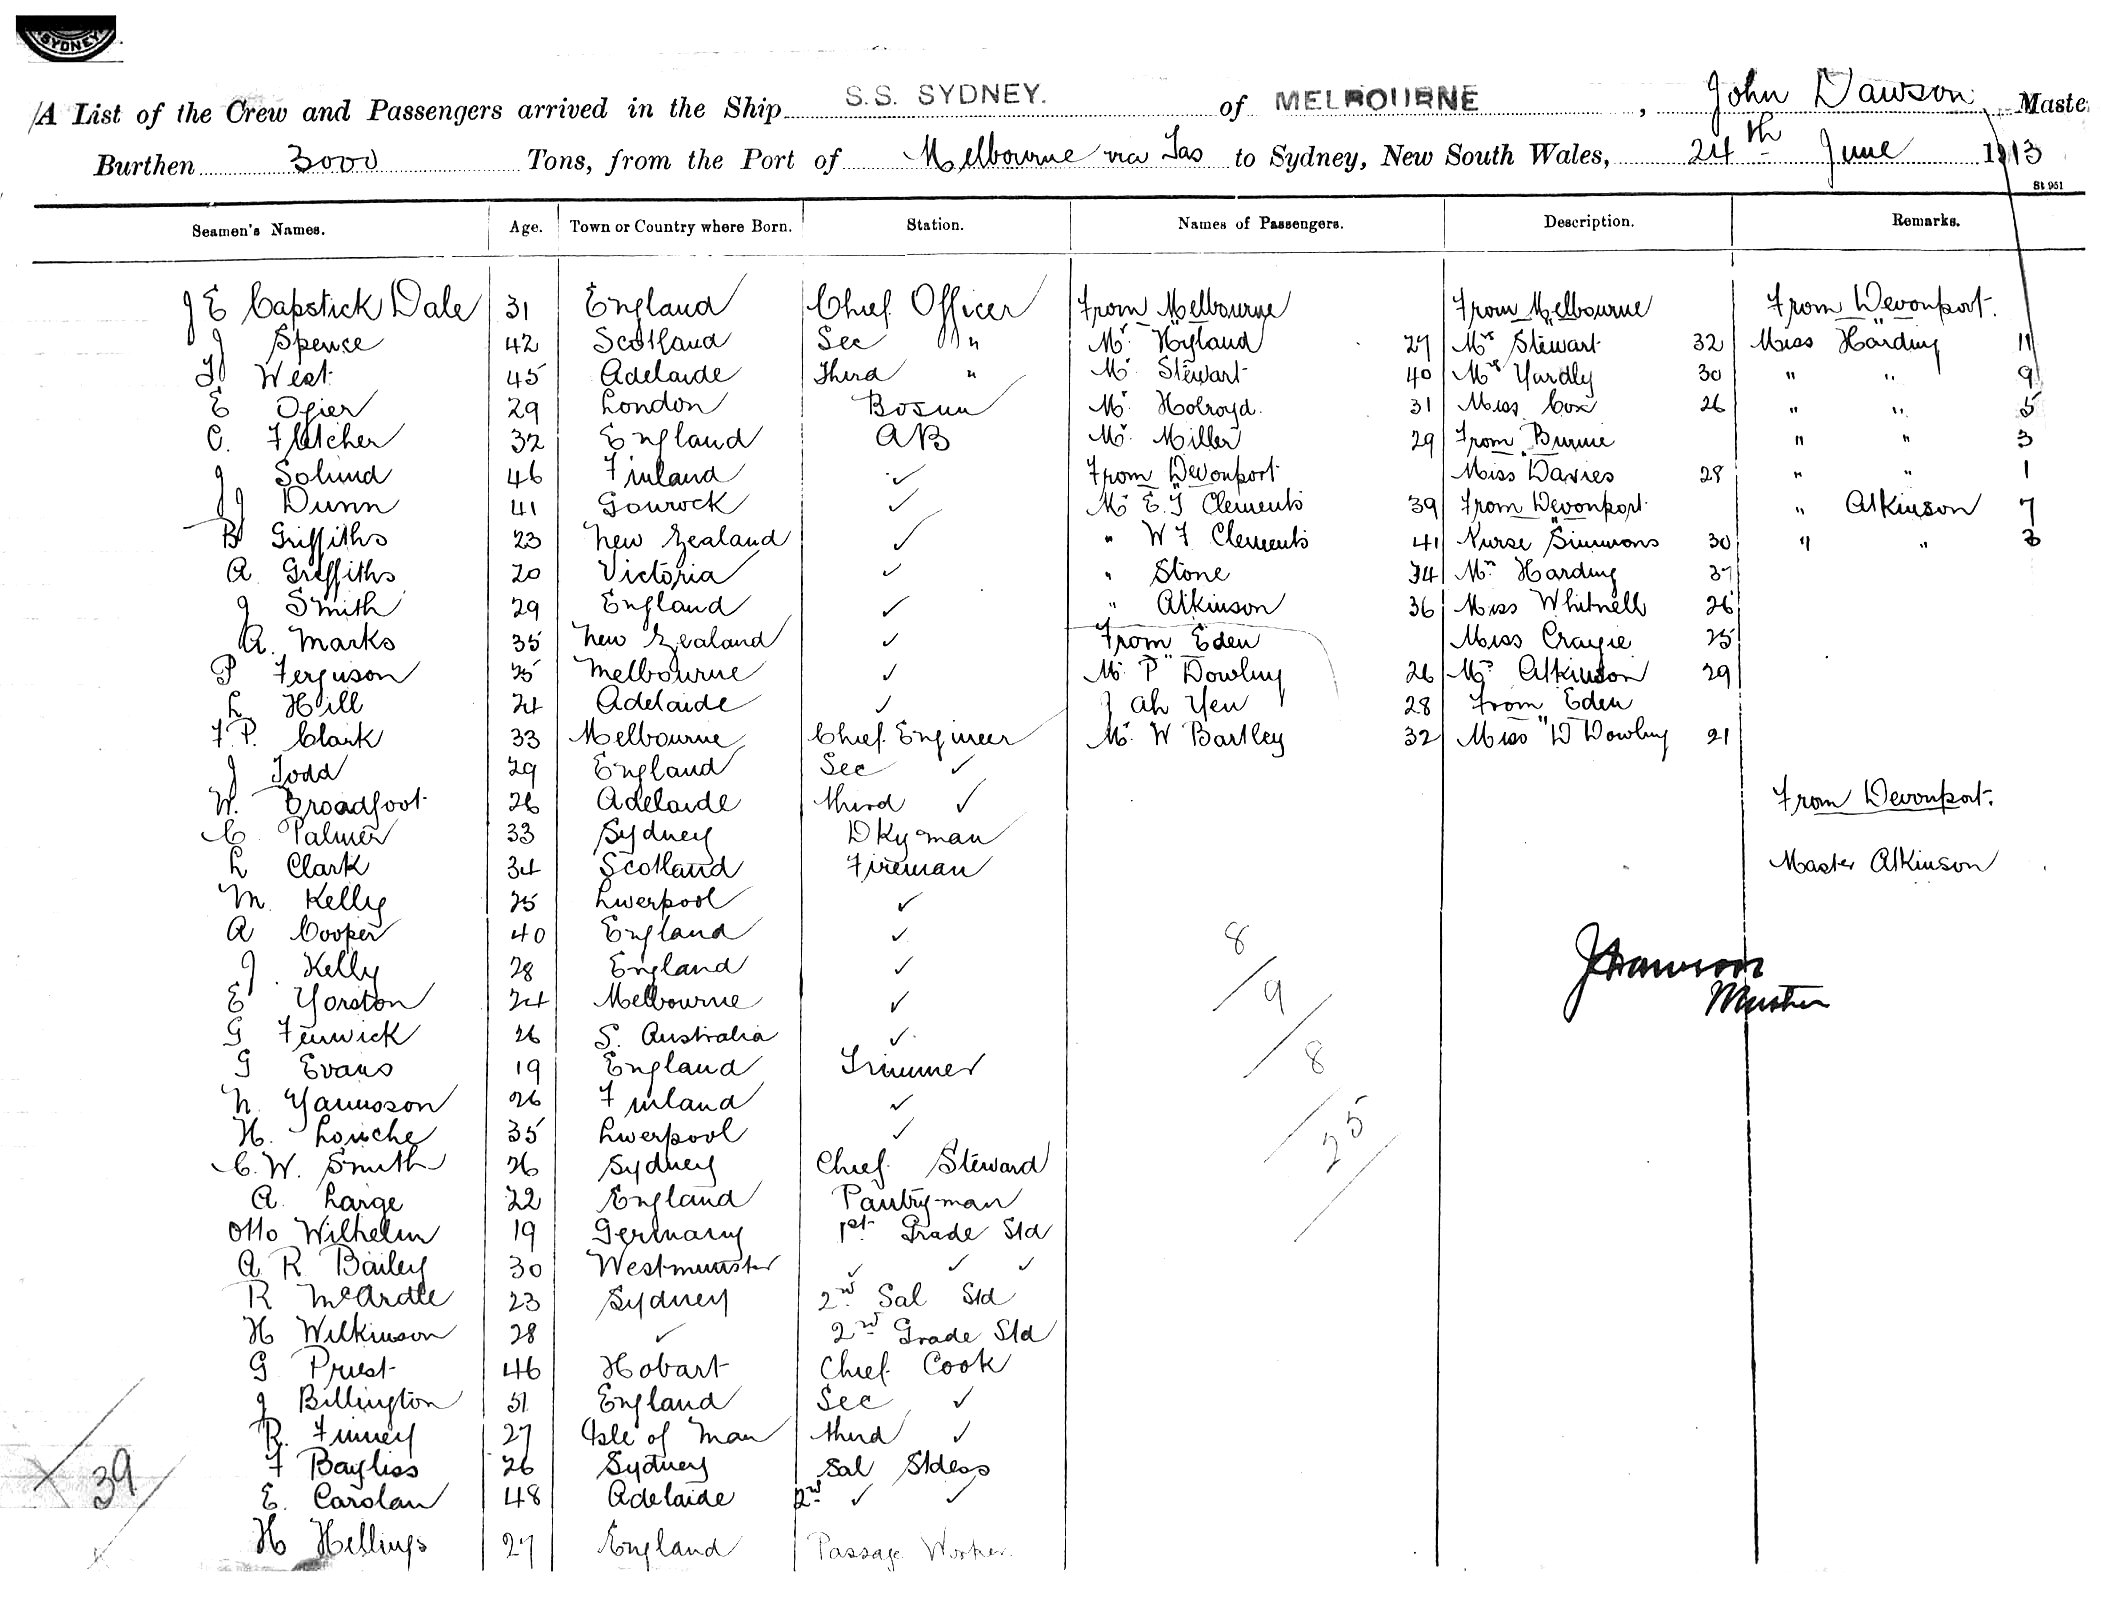 SYDNEY
A List of the Crew and Passengers arrived in the Ship S.S. SYDNEY. of MELBOURNE, John Dawson, Maste
Burthen 3000 Tons, from the Port of Melbourne via Tas to Sydney, New South Wales, 24th June 1913
St 951
Seamen's Names. Age. Town or Country where Born. Station. Names of Passengers. Description. Remarks.
J E Capstick Dale 31 England Chief Officer From Melbourne From Melbourne From Devonport.
J Spence 42 Scotland Sec " Mr Hyland 27 Mrs Stewart 32 Miss Harding 11
T West 45 Adelaide Third " Mr Stewart 40 Mrs Yardly 30 " " 9
E Ogier 29 London Bosun Mr Holroyd. 31 Miss Cox 26 " " 5
C. Fletcher 32 England AB Mr Miller 29 From Burnie " " 3
J Solund 46 Finland ✓ From Devonport Miss Davies 28 " " 1
J Dunn 41 Gourock ✓ Mr E. J Clements 39 From Devonport " Atkinson 7
B Griffiths 23 New Zealand ✓ " W F Clements 41 Nurse Simmons 30 " " 3
A Griffiths 20 Victoria ✓ " Stone 34 Mrs Harding 37
J Smith 29 England ✓ " Atkinson 36 Miss Whitnell 26
A. Marks 35 New Zealand ✓ From Eden Miss Craigie 25
P Ferguson 25 Melbourne ✓ Mr P Dowling 26 Mrs Atkinson 29
L Hill 24 Adelaide ✓ J Ah Yen 28 From Eden
F. P. Clark 33 Melbourne Chief Engineer Mr W Bartley 32 Miss D Dowling 21
J Todd 29 England Sec ✓
W. Broadfoot 26 Adelaide third ✓ From Devonport.
C. Palmer 33 Sydney Dky man
L Clark 34 Scotland Fireman Master Atkinson
M. Kelly 25 Liverpool ✓
A Cooper 40 England ✓ 8
J Kelly 28 England ✓ J Dawson
E Yorston 24 Melbourne ✓ 9 Master
G Fenwick 26 S. Australia ✓
G Evans 19 England Trimmer 8
N. 26 Finland ✓
H. Louche 35 Liverpool ✓ 25
C. W. Smith 26 Sydney Chief Steward
A. Large 22 England Pantryman
Otto Wilhelm 19 Germany 1st Grade Std
A R Bailey 30 Westminster ✓ ✓ ✓
R McArdle 23 Sydney 2nd Sal Std
H Wilkinson 28 ✓ 2nd Grade Std
G Priest 46 Hobart Chief Cook
J Billington 51 England Sec ✓
R. Finney 27 Isle of Man third ✓
F Bayliss 26 Sydney Sal Stdess
39 E. Carolan 48 Adelaide 2nd ✓ ✓
H Hellings 27 England Passage Worker